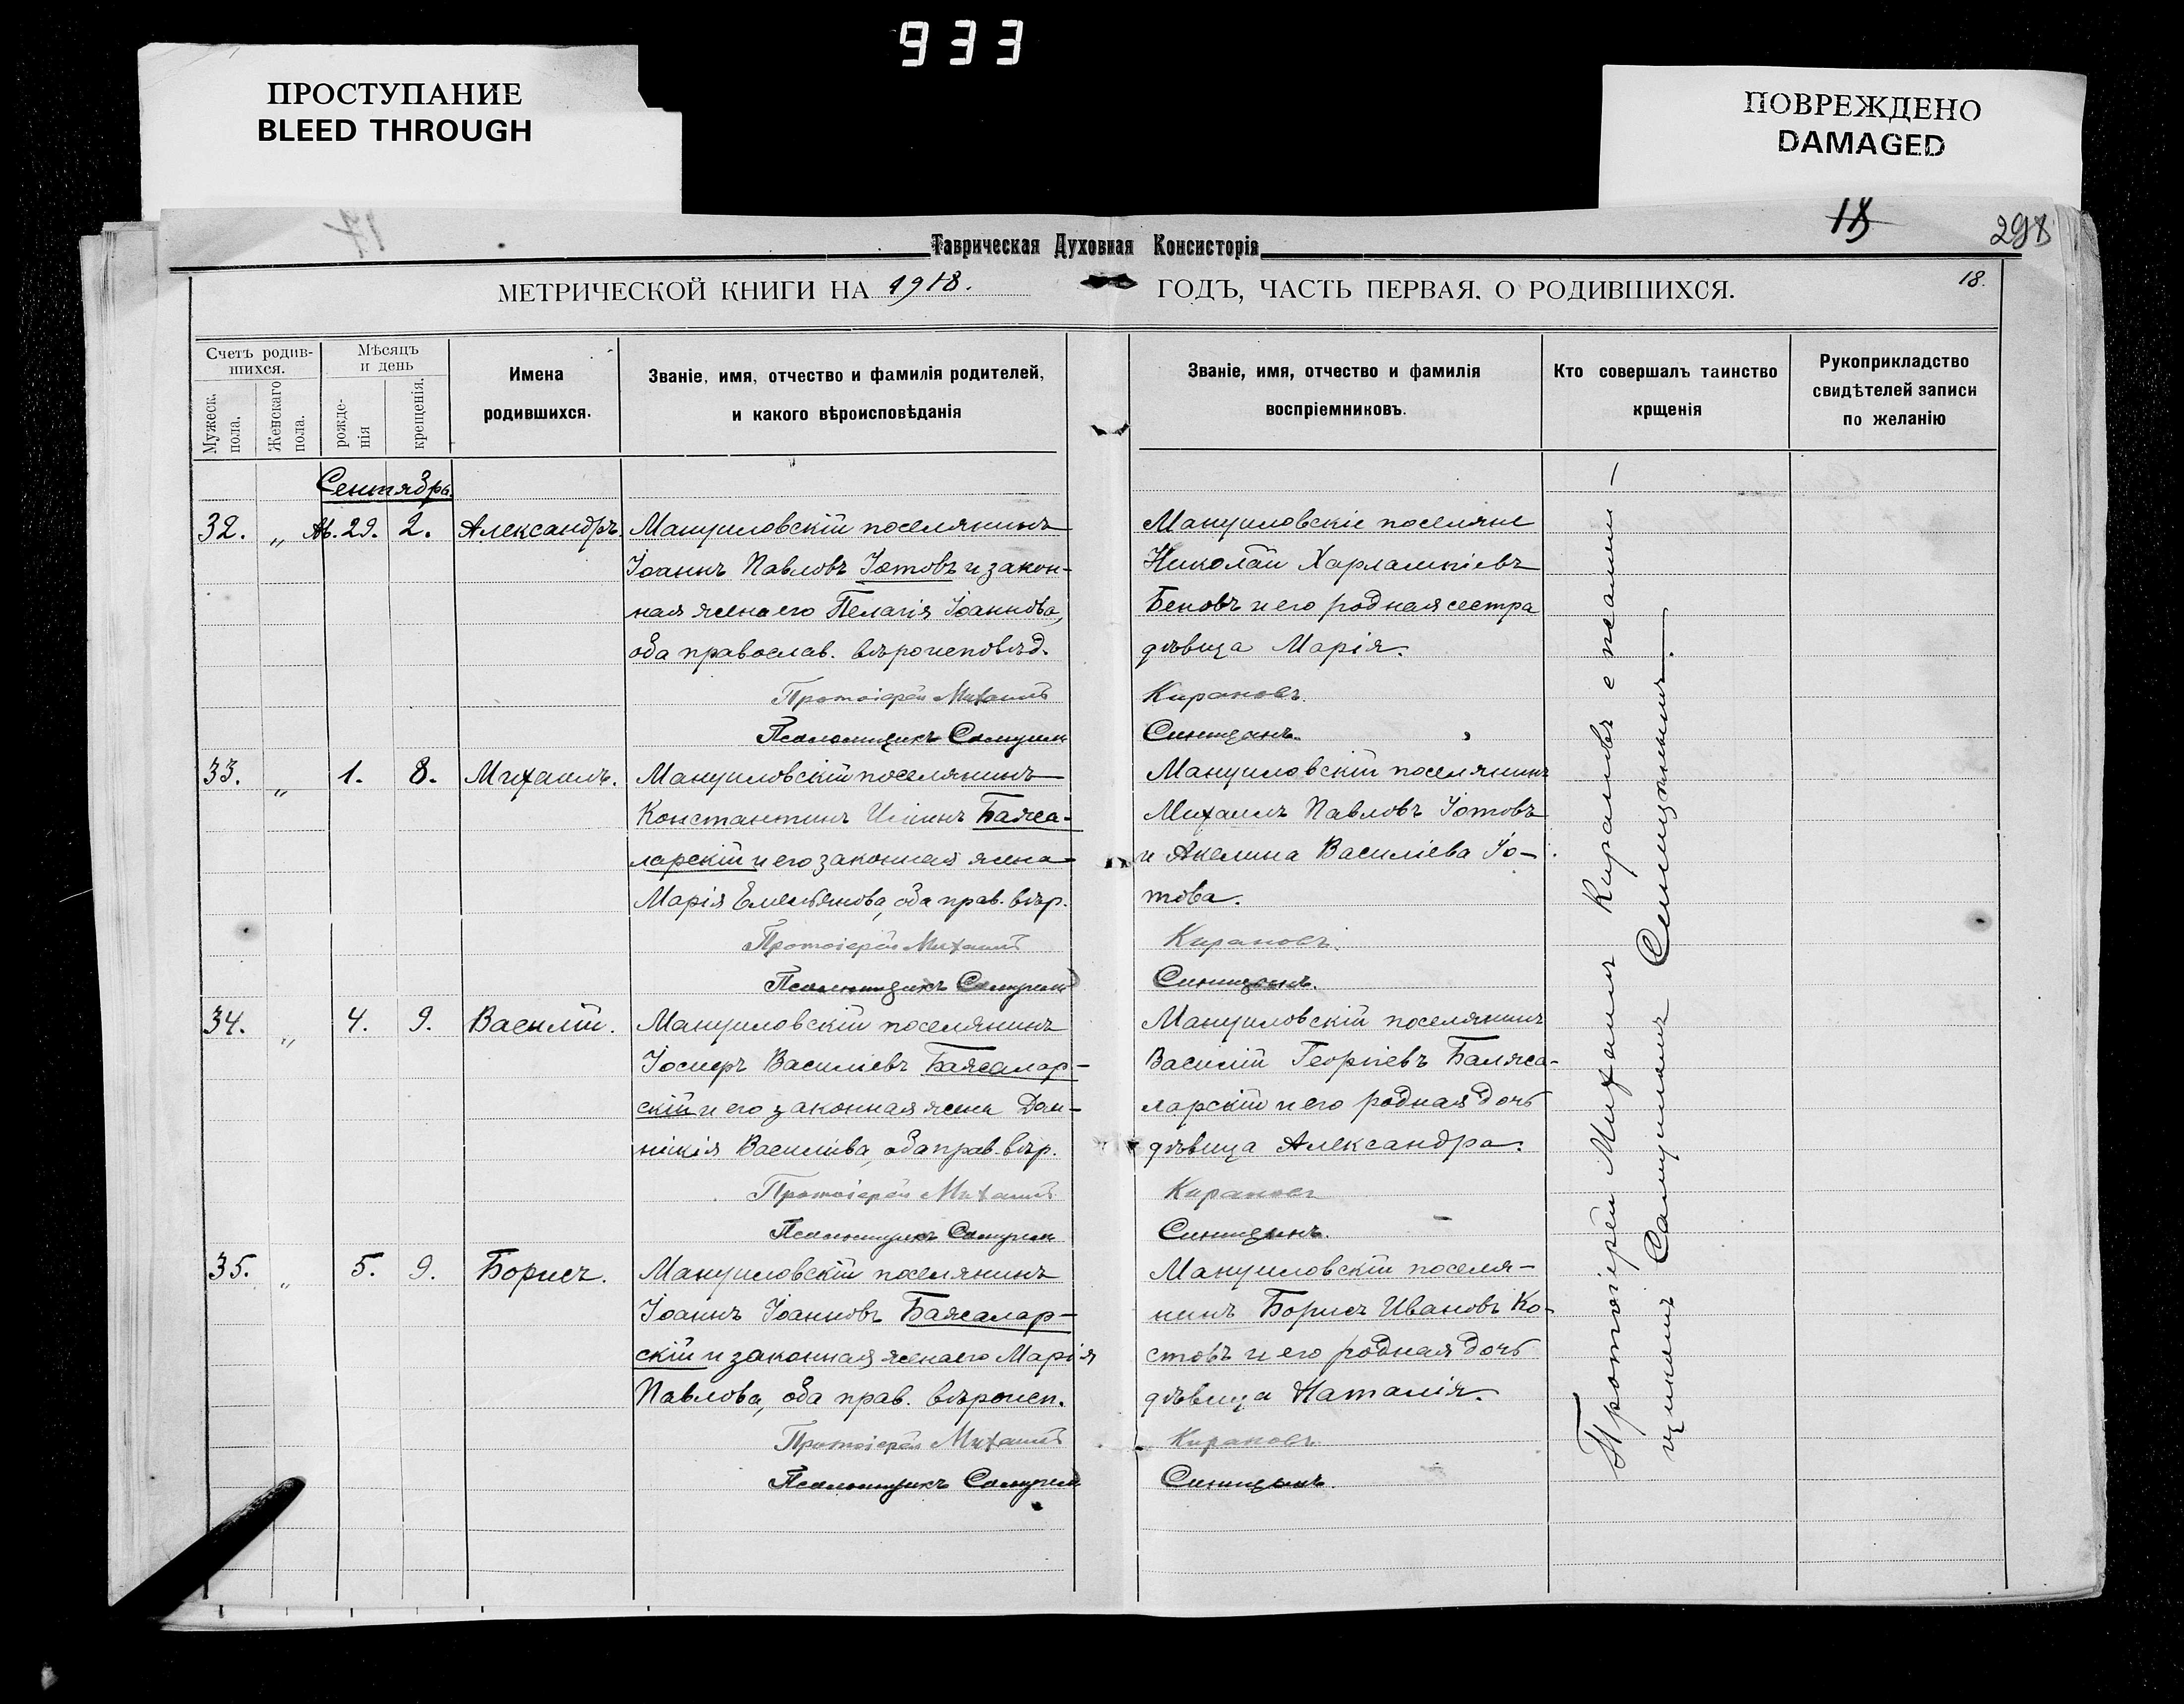 933
ПРОСТУПАНИЕ
BLEED THROUGH
ПОВРЕЖДЕНО
DAMAGED
18
298
Таврическая Духовная Консисторія
МЕТРИЧЕСКОЙ КНИГИ НА 1918. ГОДЪ, ЧАСТЬ ПЕРВАЯ. О РОДИВШИХСЯ.
18.
Счетъ родив-
шихся.
Мужеск.
пола.
Женскаго
пола.
Мѣсяцъ
и день
рожде-
нія
крещенія.
Имена
родившихся.
Званіе, имя, отчество и фамилія родителей,
и какого вѣроисповѣданія
Званіе, имя, отчество и фамилія
воспріемниковъ.
Кто совершалъ таинство
крщенія
Рукоприкладство
свидѣтелей записи
по желанію
Сентябрь.
32. „ Ав. 29. 2. Александръ.
Мануиловскій поселянинъ
Іоаннъ Павловъ Іотовъ и закон-
ная жена его Пелагія Іоаннова,
оба православ. вѣроисповѣд.
Протоіерей Михаилъ
Псаломщикъ Самуилъ
Мануиловскіе поселяне
Николай Харлампіевъ
Беновъ и его родная сестра
дѣвица Марія.
Кирановъ.
Синицынъ.
33. „ 1. 8. Михаилъ.
Мануиловскій поселянинъ
Константинъ Иліинъ Баяса-
ларскій и его законная жена
Марія Емельянова, оба прав. вѣр.
Протоіерей Михаилъ
Псаломщикъ Самуилъ
Мануиловскій поселянинъ
Михаилъ Павловъ Іотовъ
и Акелина Василіева Іо-
това.
Кирановъ.
Синицынъ.
34. „ 4. 9. Василій.
Мануиловскій поселянинъ
Іосифъ Василіевъ Баясалар-
скій и его законная жена Дом-
нікія Василіва, оба прав. вѣр.
Протоіерей Михаилъ
Псаломщикъ Самуилъ
Мануиловскій поселянинъ
Василій Георгіевъ Баляса-
ларскій и его родная дочь
дѣвица Александра.
Кирановъ
Синицынъ.
35. „ 5. 9. Борисъ.
Мануиловскій поселянинъ
Іоаннъ Іоанновъ Баясалар-
скій и законная жена его Марія
Павлова, оба прав. вѣроисп.
Протоіерей Михаилъ
Псаломщикъ Самуилъ
Мануиловскій поселя-
нинъ Борисъ Ивановъ Ко-
стовъ и его родная дочь
дѣвица Наталія.
Кирановъ
Синицынъ.
Протоіерей Михаилъ Кирановъ с псалом-
щикомъ Самуиломъ Синицынымъ.